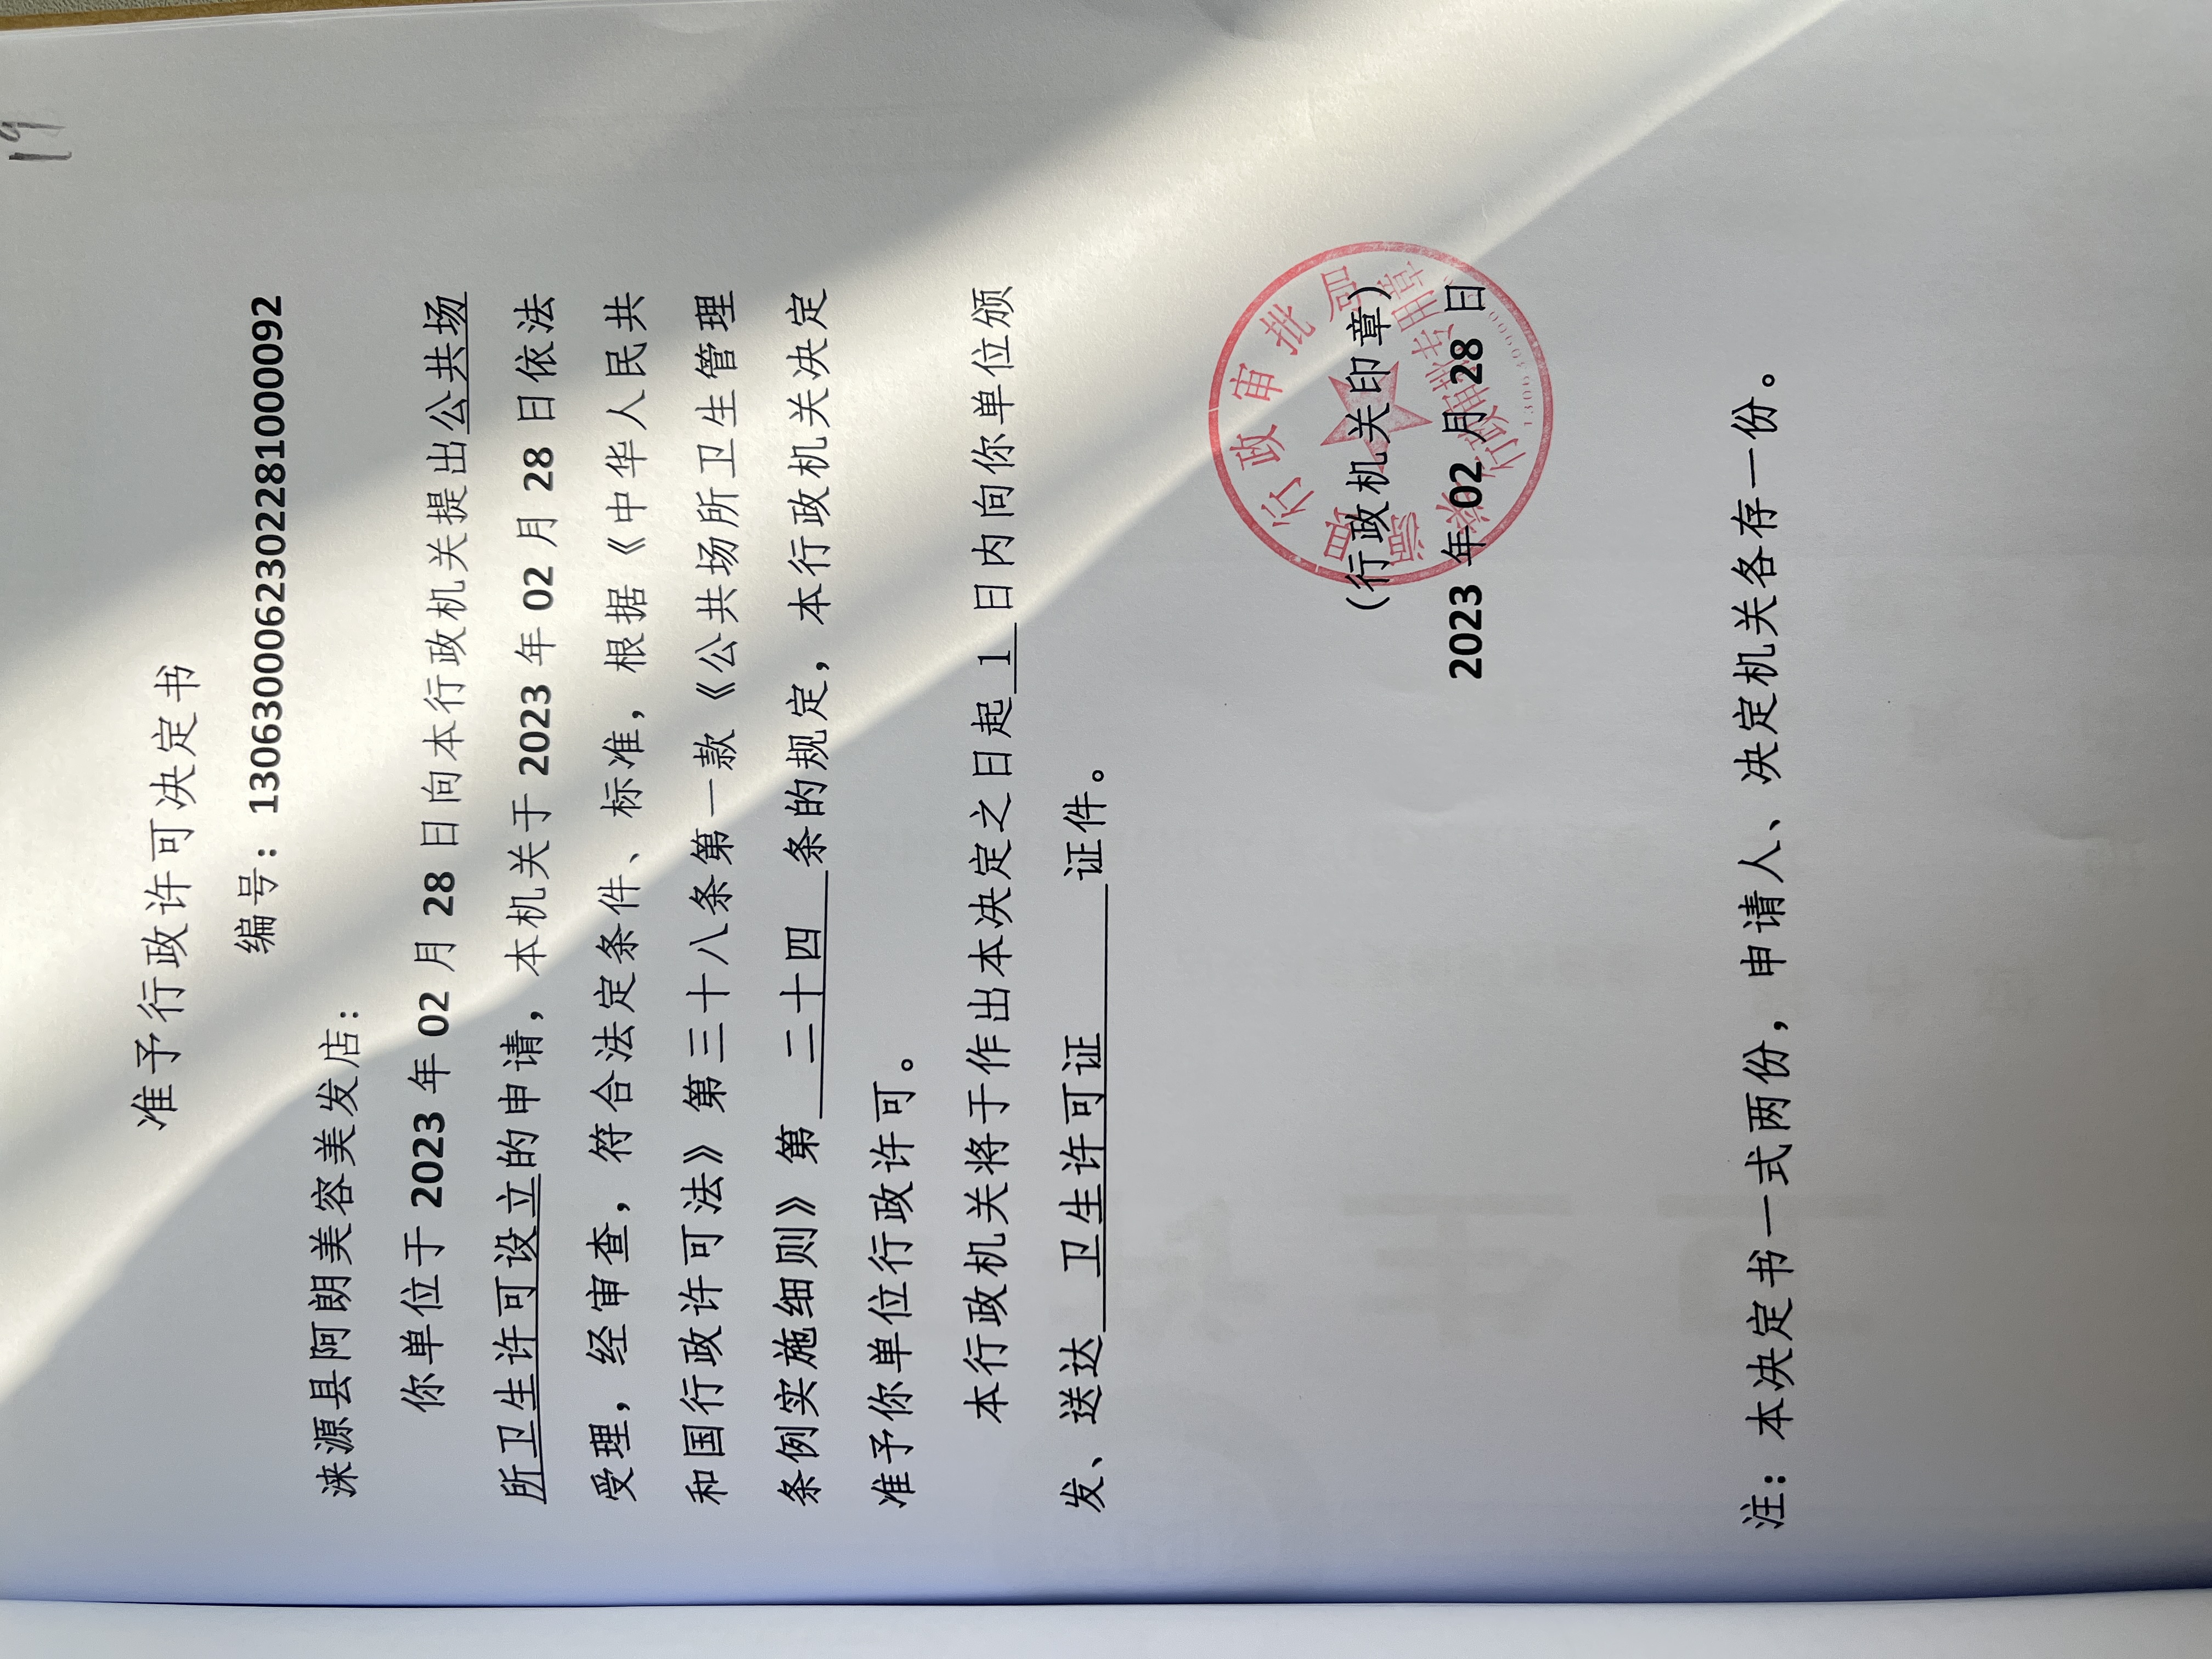 19
准予行政许可决定书
编号：130630006230228100​0092
涞源县阿朗美容美发店：
你单位于 2023 年 02 月 28 日向本行政机关提出公共场
所卫生许可设立的申请，本机关于 2023 年 02 月 28 日依法
受理，经审查，符合法定条件、标准，根据《中华人民共
和国行政许可法》第三十八条第一款《公共场所卫生管理
条例实施细则》第 二十四 条的规定，本行政机关决定
准予你单位行政许可。
本行政机关将于作出本决定之日起 1 日内向你单位颁
发、送达 卫生许可证 证件。
行政审批局
（行政机关印章）
2023 年 02 月 28 日
注：本决定书一式两份，申请人、决定机关各存一份。